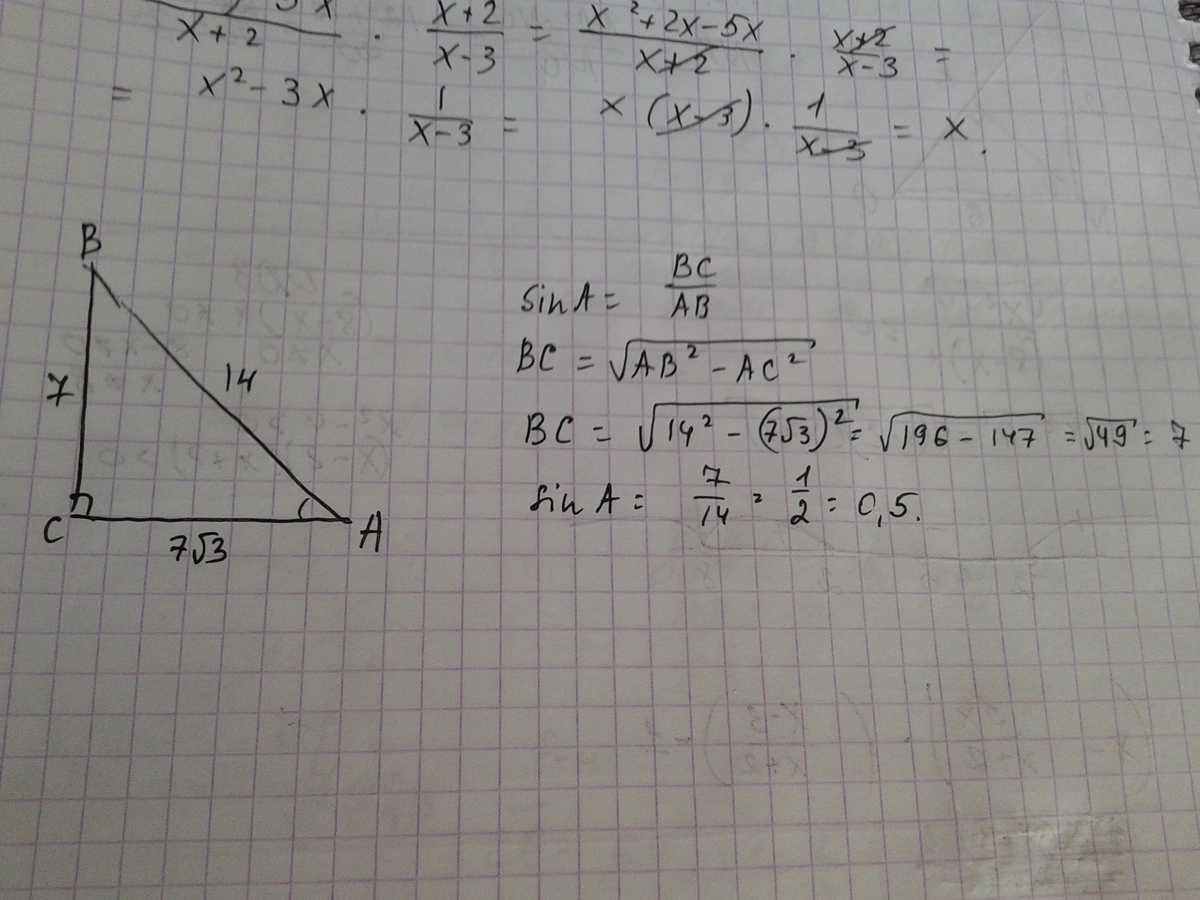 x+2 · x+2/x-3 = x²+2x-5x/x+2 · x+2/x-3 =
= x²-3x · 1/x-3 = x (x-3) · 1/x-3 = x.
B
sin A = BC/AB
BC = √AB² - AC²
7
14
BC = √14² - (7√3)² = √196 - 147 = √49 = 7
sin A = 7/14 = 1/2 = 0,5.
C
A
7√3